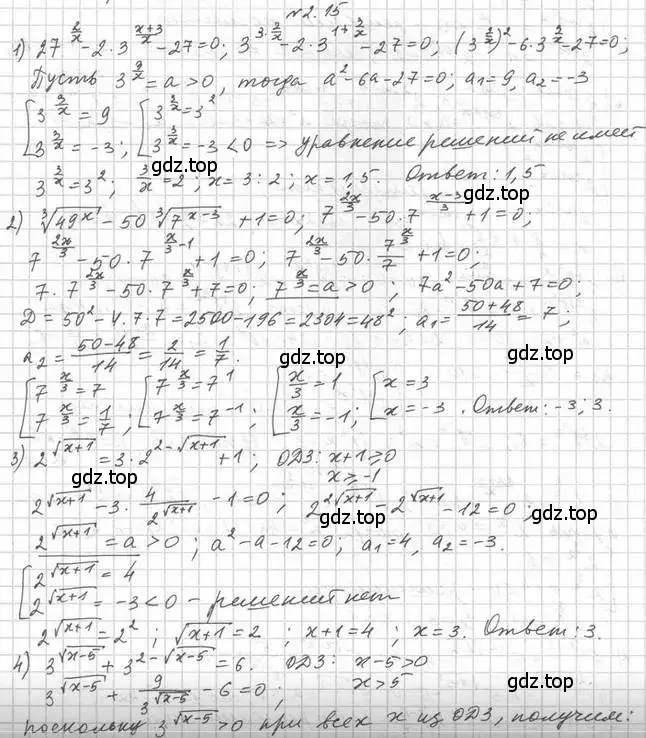 №2.15
1) 27^(2/x) - 2·3^((x+3)/x) - 27 = 0; 3^(3·2/x) - 2·3^(1+3/x) - 27 = 0; (3^(3/x))² - 6·3^(3/x) - 27 = 0;
Пусть 3^(3/x) = a > 0, тогда a² - 6a - 27 = 0; a₁ = 9, a₂ = -3
[ 3^(3/x) = 9 [ 3^(3/x) = 3²
3^(3/x) = -3; 3^(3/x) = -3 < 0 => уравнение решений не имеет
gdz.top
3^(3/x) = 3²; 3/x = 2; x = 3 : 2; x = 1,5. Ответ: 1,5
gdz.top
2) ∛(49^x) - 50 ∛(7^(x-3)) + 1 = 0; 7^(2x/3) - 50·7^((x-3)/3) + 1 = 0;
gdz.top
7^(2x/3) - 50·7^(x/3-1) + 1 = 0; 7^(2x/3) - 50·7^(x/3)/7 + 1 = 0;
7·7^(2x/3) - 50·7^(x/3) + 7 = 0; 7^(x/3) = a > 0; 7a² - 50a + 7 = 0;
D = 50² - 4·7·7 = 2500 - 196 = 2304 = 48²; a₁ = (50+48)/14 = 7;
a₂ = (50-48)/14 = 2/14 = 1/7.
gdz.top
[ 7^(x/3) = 7 [ 7^(x/3) = 7¹ [ x/3 = 1 [ x = 3
7^(x/3) = 1/7; 7^(x/3) = 7^(-1); x/3 = -1; x = -3. Ответ: -3; 3.
gdz.top
3) 2^√(x+1) = 3·2^(2-√(x+1)) + 1; ОДЗ: x+1 ≥ 0
x ≥ -1
gdz.top
2^√(x+1) - 3·4/2^√(x+1) - 1 = 0; 2^(2√(x+1)) - 2^√(x+1) - 12 = 0;
gdz.top
2^√(x+1) = a > 0; a² - a - 12 = 0; a₁ = 4, a₂ = -3.
gdz.top
[ 2^√(x+1) = 4
2^√(x+1) = -3 < 0 - решений нет
gdz.top
2^√(x+1) = 2²; √(x+1) = 2; x+1 = 4; x = 3. Ответ: 3.
4) 3^√(x-5) + 3^(2-√(x-5)) = 6. ОДЗ: x-5 > 0
gdz.top
3^√(x-5) + 9/3^√(x-5) - 6 = 0; x > 5
gdz.top
поскольку 3^√(x-5) > 0 при всех x из ОДЗ, получим: